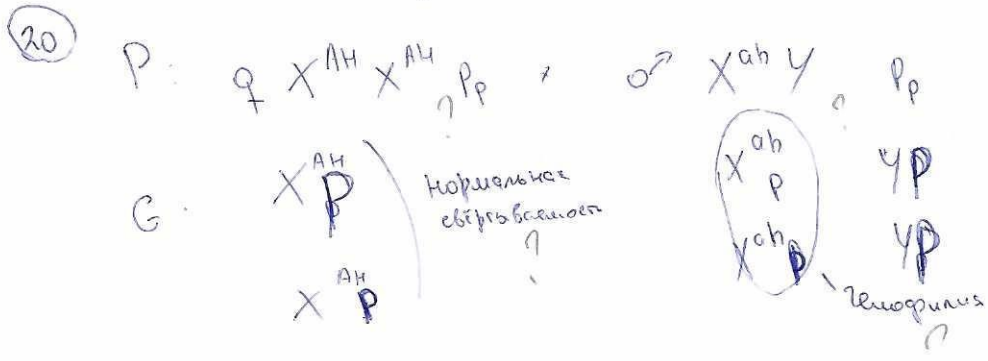 20
P: ♀ X^AH X^AH Pp × ♂ X^ah Y Pp
? ?
G: X^AH P нормальная свёртываемость ? X^ah p YP
X^AH p X^ah P YP
гемофилия ?